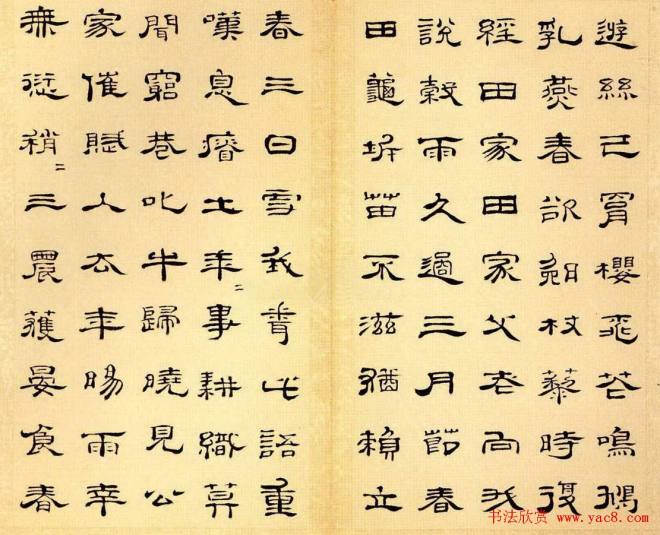 遊絲已罥櫻飛花鳴鳩
乳燕春欲杖藜時復
經田家田家父老向我
說穀雨久過三月節春
田龜坼苗不滋猶賴立
春三日雪我此語重
嘆息瘠土年二事耕織莫
聞窮巷叱牛歸曉見公
家催賦入去年暘雨幸
無愆稍二三農獲晏食春
书法欣赏 www.yac8.com